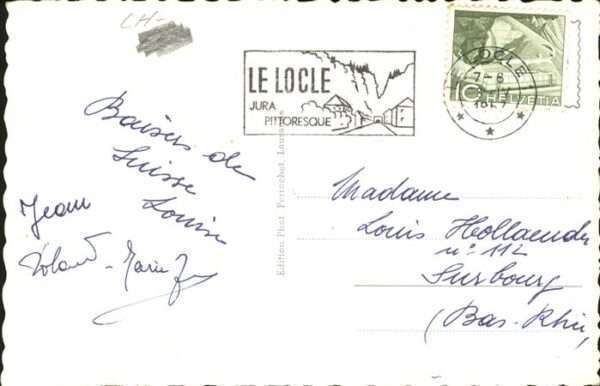 CH-
LE LOCLE
JURA
PITTORESQUE
LOCLE
7-8
10 HELVETIA
Baisers de
Suisse
Louise
Jean
Roland - Marie
Edition Phot Perrochet, Lausanne
Madame
Louis Hollaender
n° 112
Surbourg
(Bas-Rhin)